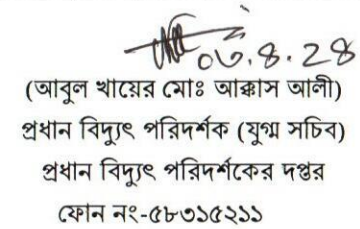 ০৩.৪.২৪
(আবুল খায়ের মোঃ আক্কাস আলী)
প্রধান বিদ্যুৎ পরিদর্শক (যুগ্ম সচিব)
প্রধান বিদ্যুৎ পরিদর্শকের দপ্তর
ফোন নং-৫৮৩১৫২১১